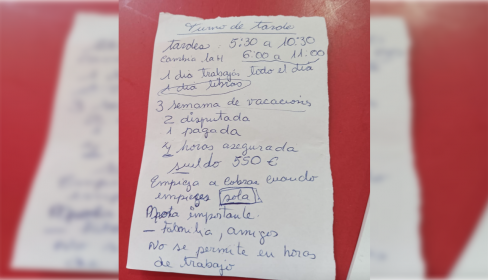 Turno de tarde
tardes: 5:30 a 10:30
cambia la H 6:00 a 11:00
1 dia trabajas todo el dia
1 dia libras
3 semama de vacacions
2 disputada
1 pagada
4 horas asegurada
sueldo 550 €
Empieza a cobrar cuando
empieces sola
importante
- Familia, amigos
No se permite en horas
de trabajo